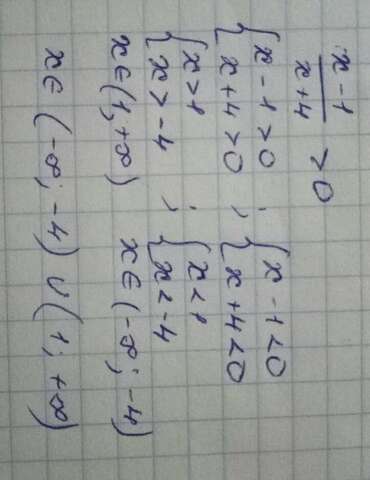 x-1/x+4 > 0
{ x-1>0 ; { x-1<0
x+4>0 x+4<0
{ x>1 ; { x<1
x>-4 , x<-4
x∈(1;+∞) x∈(-∞;-4)
x∈(-∞;-4)∪(1;+∞)